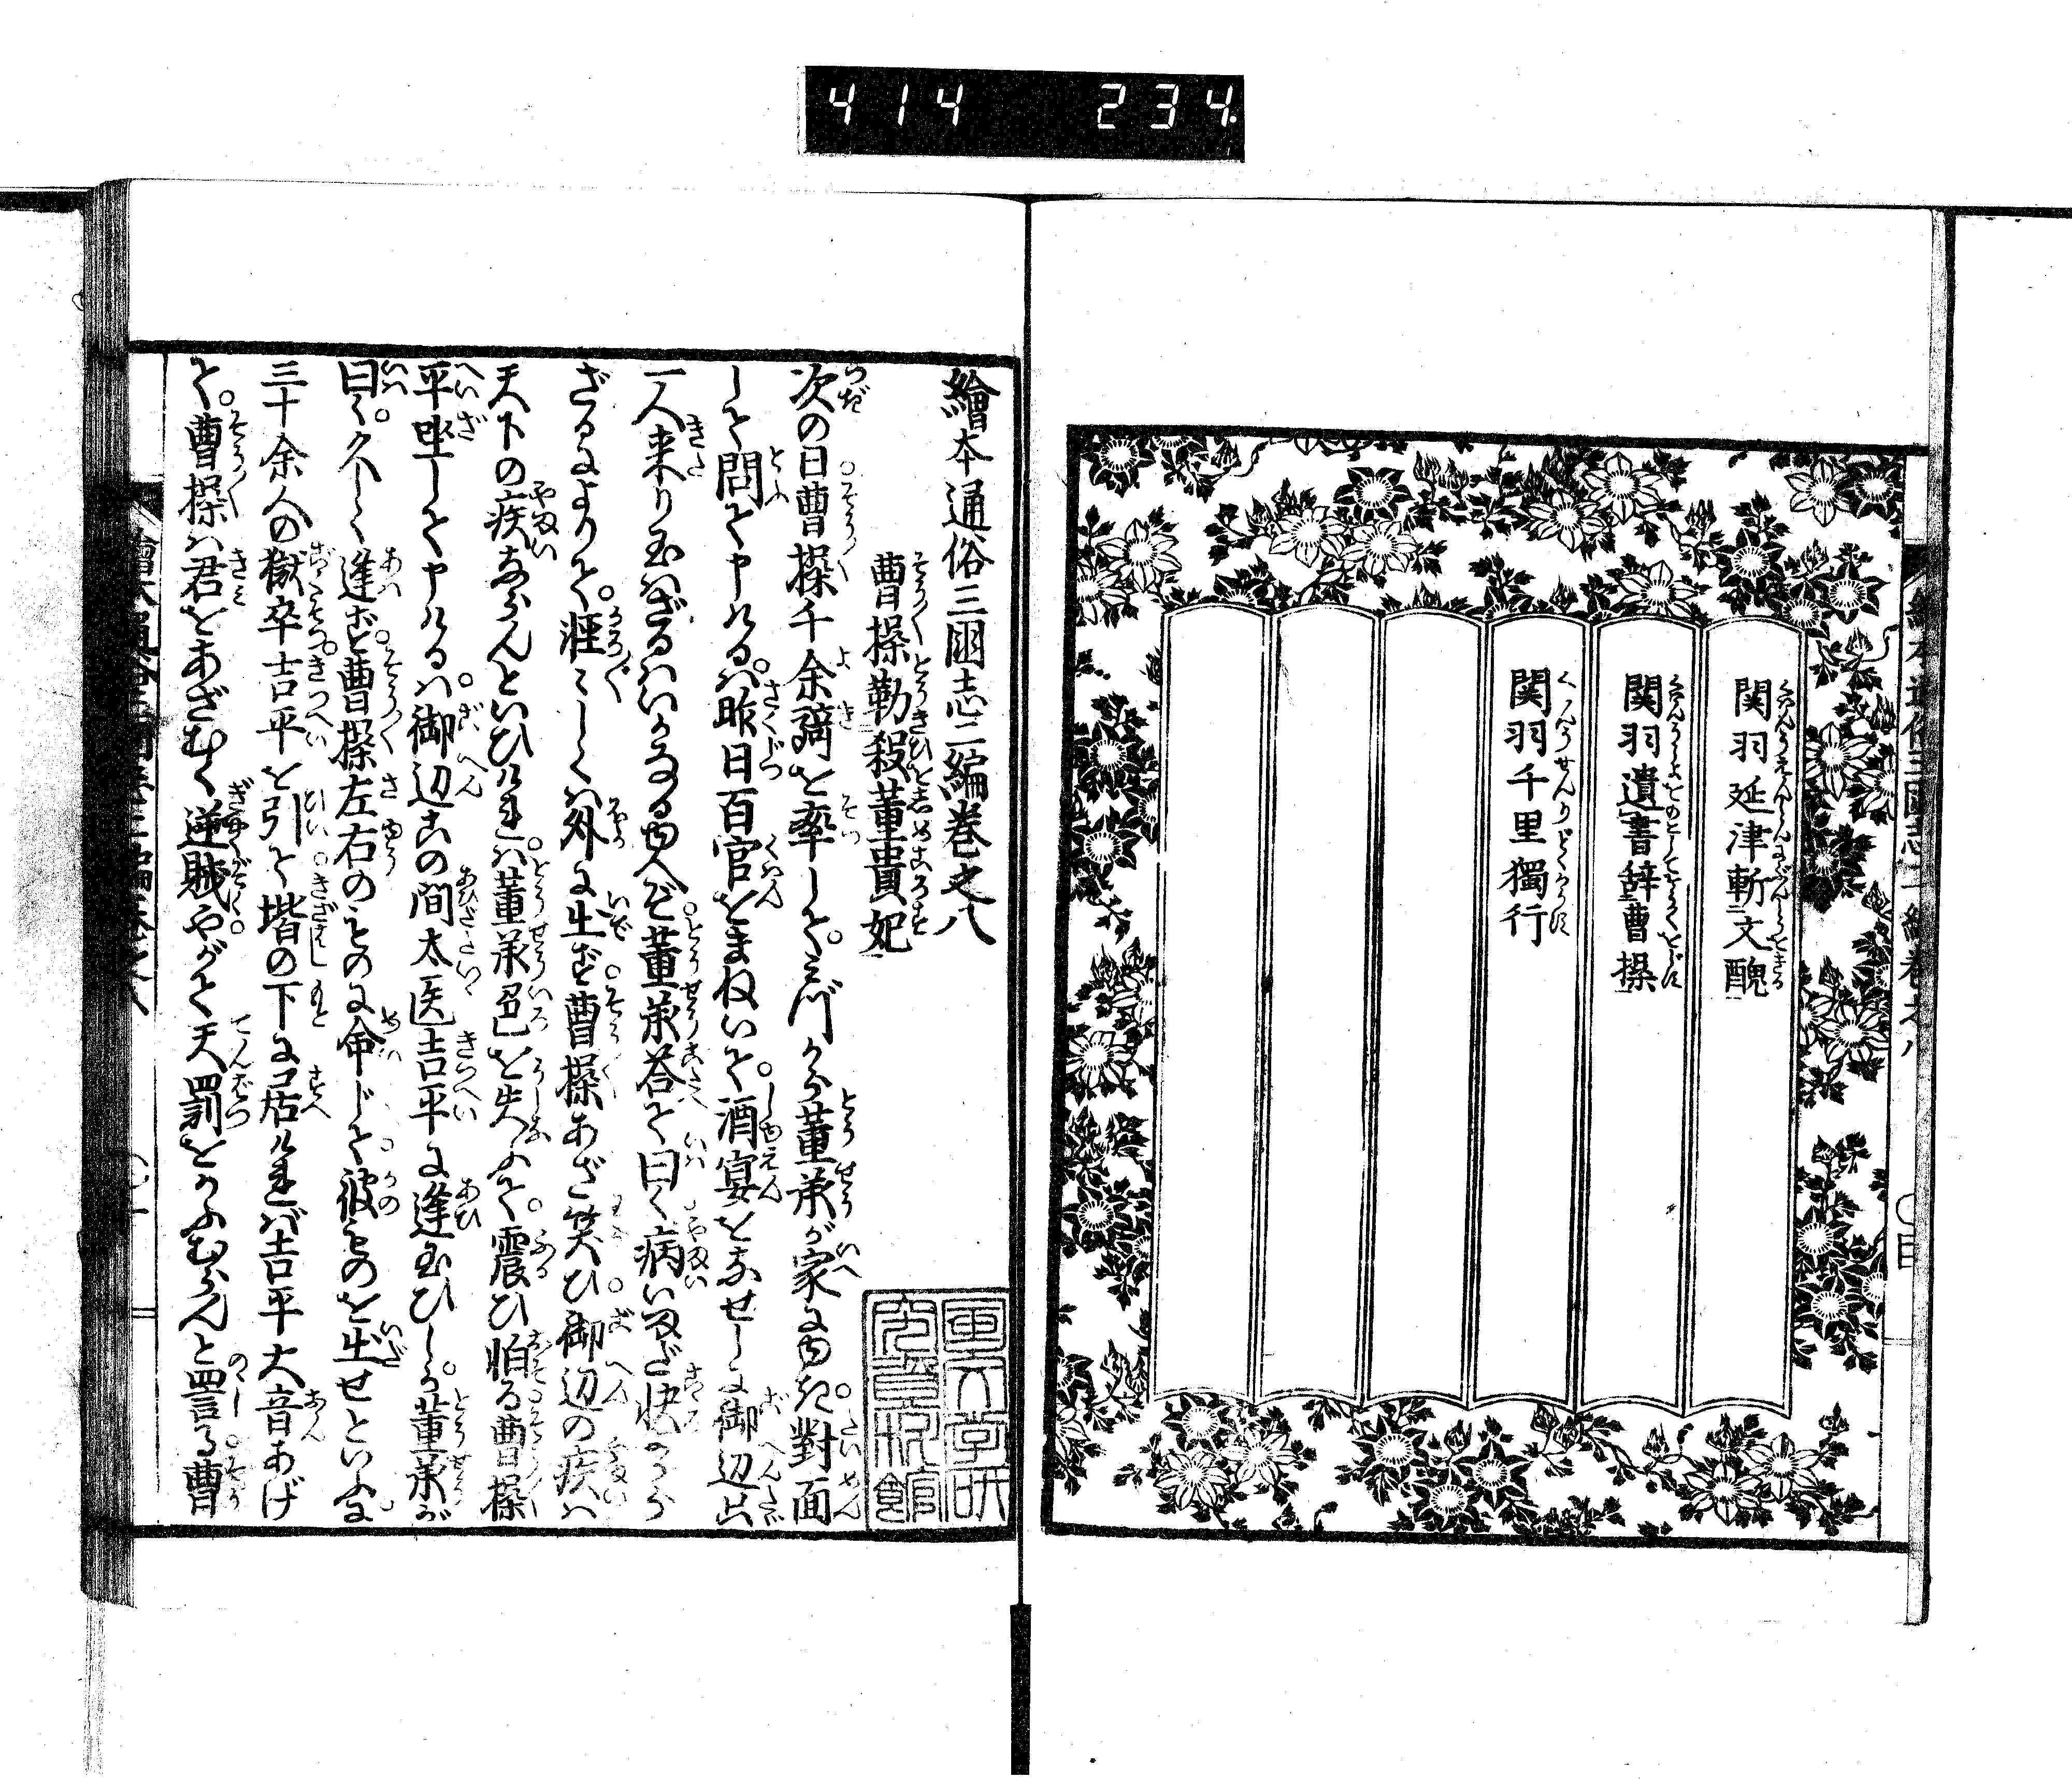 414 234
関羽延津斬文醜
関羽遺書辞曹操
関羽千里獨行
繪本通俗三國志二編巻之八
曹操勒殺董貴妃
次の日曹操千余騎を率して。みづから董承が家にゆき對面
して問て申けるハ。昨日百官をまねいて。酒宴をなせしに御辺
一人来り玉ハざるハいかなるゆへぞ董承荅て曰く病いまだ快から
ざるによりて。軽〻しくハ外に出ず曹操あざ笑ひ御辺の疾ハ
天下の疾ならんといひけれバ。董承色を失ふて。震ひ怕る曹操
平坐して申けるハ。御辺この間太医吉平に逢玉ひしか。董承が
曰く。久しく逢ずと曹操左右のものに命じて彼ものを出せといふに
三十余人の獄卒吉平を引て堦の下に居けれバ吉平大音あげ
て。曹操ハ君をあざむく逆賊やがて天罰をかふむらんと詈る曹